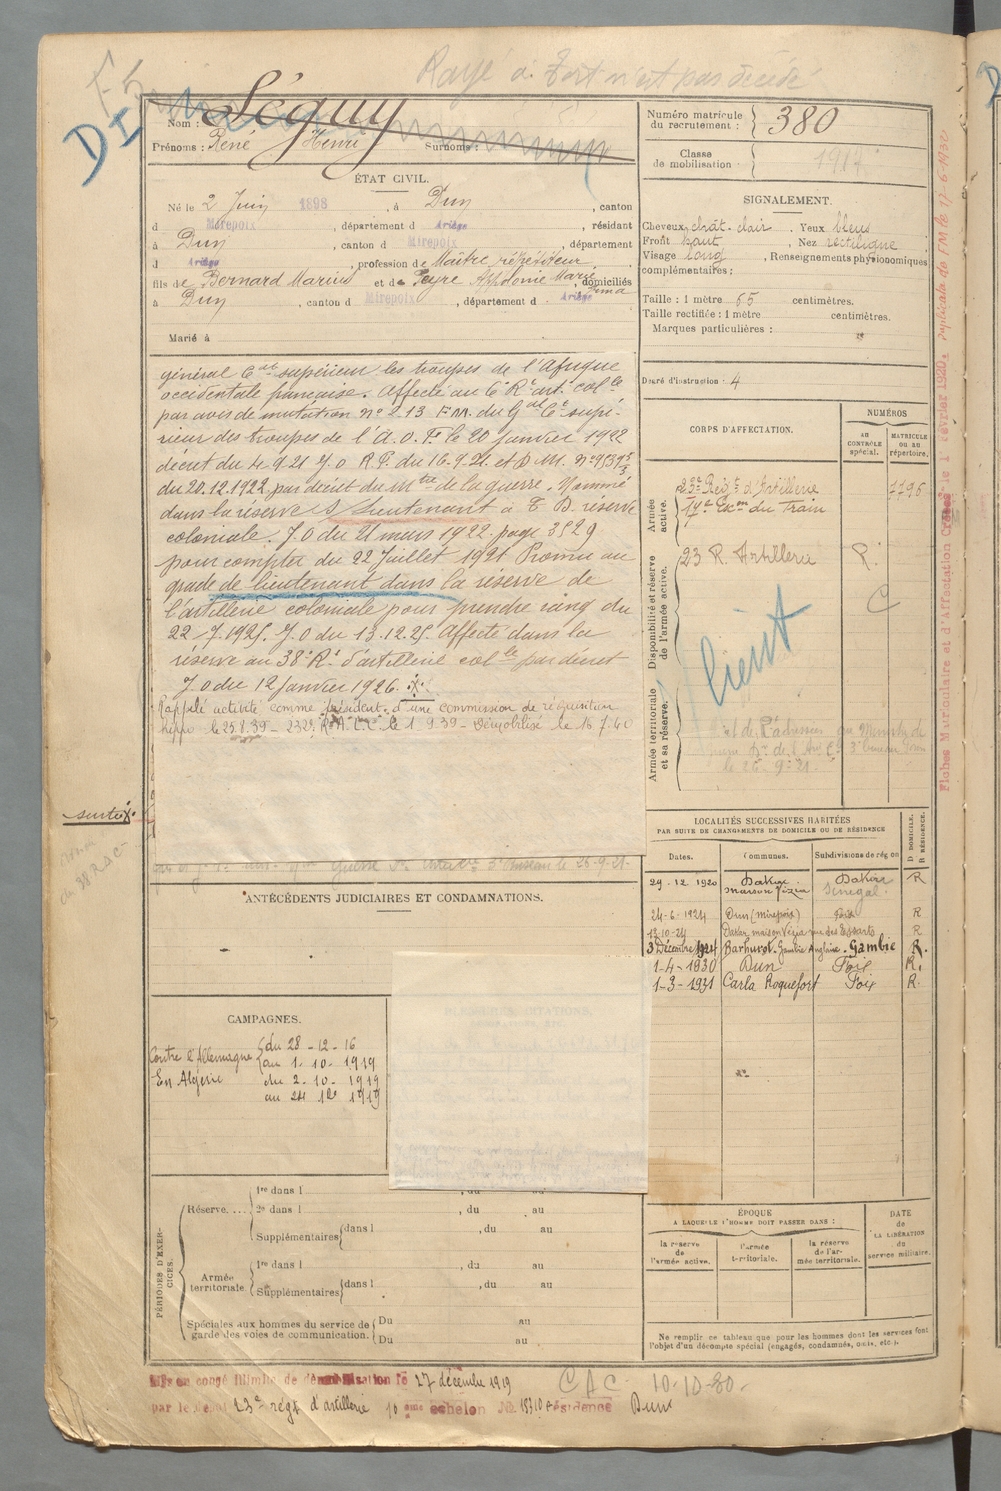 Rayé à tort n'est pas décédé
F5
DI
Nom : Séguy
Prénoms : René Henri Surnoms :
Numéro matricule du recrutement : 380
Classe de mobilisation : 1917
ÉTAT CIVIL.
Né le 2 Juin 1898, à Dun, canton
d Mirepoix, département d Ariège, résidant
à Dun, canton d Mirepoix, département
d Ariège, profession de Maître répétiteur
fils de Bernard Marius et de Peyre Apolonie Marie, domiciliés
à Dun, canton d Mirepoix, département d Ariège
Marié à
SIGNALEMENT.
Cheveux chât. clair. Yeux bleus
Front haut, Nez rectiligne
Visage long, Renseignements physionomiques
complémentaires :
Taille : 1 mètre 65 centimètres.
Taille rectifiée : 1 mètre centimètres.
Marques particulières :
Degré d'instruction : 4
général Ct supérieur les troupes de l'Afrique
occidentale française. Affecté au 6e Rt art. colle
par avis de mutation no 213 F.M. du Gal Ct supé-
rieur des troupes de l'A.O.F. le 20 janvier 1922
décret du 4.9.21 J.o R.F. du 16.9.21. et D.M.
du 20.12.1922, par décret du Mtre de la guerre. Nommé
dans la réserve S/Lieutenant à T.D. réserve
coloniale. J.O du 21 mars 1922. page 3529
pour compter du 22 Juillet 1921 Promu au
grade de lieutenant dans la réserve de
l'artillerie coloniale pour prendre rang du
22.7.1925. J.O du 13.12.25. Affecté dans la
réserve au 38e Rt d'artillerie colle par décret
J.o du 12 Janvier 1926.
Rappelé activité comme président d'une commission de réquisition
hippo le 25.8.39 - le 1.9.39 - Démobilisé le 16.7.40
suite
CORPS D'AFFECTATION.
NUMÉROS
AU CONTRÔLE spécial.
MATRICULE ou au répertoire.
Armée active.
23e Regt d'Artillerie 1796
17e Escon du Train
Disponibilité et réserve de l'armée active.
23 R. Artillerie R.
C
lieut
Armée territoriale et sa réserve.
le 26-9-21
Fiches Matriculaire et d'Affectation Créées le 1er Février 1920. Duplicata de FM le 17-6-1932
Guerre Bureau le 26-9-21.
LOCALITÉS SUCCESSIVES HABITÉES
PAR SUITE DE CHANGEMENTS DE DOMICILE OU DE RÉSIDENCE
Dates. Communes. Subdivisions de région D DOMICILE. R RÉSIDENCE.
29.12.1920 Dakar maison Vézia Dakar Sénégal. R
24-6-1924 Dun (Mirepoix) Foix R
13-10-24 Dakar maison Vézia rue des Essarts R
3 Décembre 1924 Barhurst. Gambie Anglaise. Gambie R.
1-4-1930 Dun Foix R.
1-3-1931 Carla Roquefort Foix R.
ANTÉCÉDENTS JUDICIAIRES ET CONDAMNATIONS.
CAMPAGNES.
Contre l'Allemagne du 28-12-16
au 1-10-1919
En Algérie du 2-10-1919
au 24 12 1919
PÉRIODES D'EXERCICES.
Réserve....
1re dans l , du au
2e dans l , du au
Supplémentaires dans l , du au
Armée territoriale.
1re dans l , du au
Supplémentaires dans l , du au
Spéciales aux hommes du service de garde des voies de communication.
Du au
Du au
ÉPOQUE
A LAQUELLE L'HOMME DOIT PASSER DANS :
la réserve de l'armée active.
l'armée territoriale.
la réserve de l'armée territoriale.
DATE de LA LIBÉRATION du service militaire.
Ne remplir ce tableau que pour les hommes dont les services font
l'objet d'un décompte spécial (engagés, condamnés, omis, etc.).
Mis en congé illimité de démobilisation le 27 décembre 1919
par le dépôt 23e régt d'artillerie 10 ème échelon No 18310 résidence Dun
CAC 10-10-30.